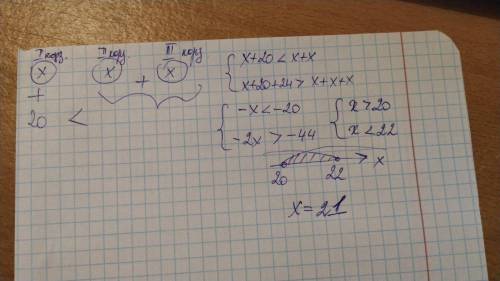 I корз. II корз III корз
x x + x
+
20 <
x+20 < x+x
x+20+24 > x+x+x
-x < -20
-2x > -44
x > 20
x < 22
20 22 x
x = 21